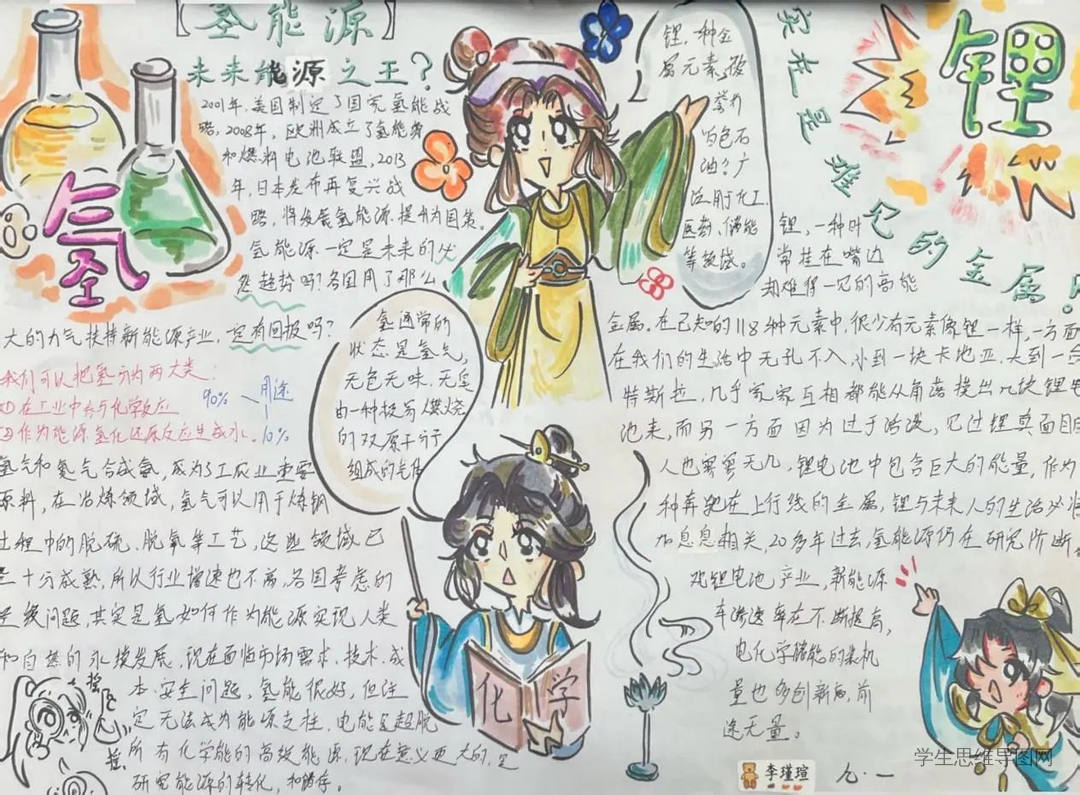 【氢能源】
未来能源之王？
2001年,美国制定了国家氢能战
略,2008年,欧洲成立了氢能势
和燃料电池联盟,2013
年,日本发布再复兴战
略,将发展氢能源提升为国策。
氢能源一定是未来的必
然趋势吗?各国用了那么
大的力气扶持新能源产业,定有回报吗?
我们可以把氢分为两大类:
①在工业中参与化学反应
②作为能源氢化还原反应生成水。
90%
用途
10%
氢气和氮气合成氨,成为了工农业重要
原料,在冶炼领域,氢气可以用于炼钢
过程中的脱硫、脱氧等工艺,这些领域已
十分成熟,所以行业增速也不高,各国考虑的
问题,其实是氢如何作为能源实现人类
和自然的永续发展,现在面临市场需求,技术,成
本,安全问题,氢能很好,但注
定无法成为能源之柱,电能是超脱
所有化学能的高效能源,现在意义更大的,是
研究能源的转化,和储存。
氢
氢通常的
状态是氢气,
无色无味,无臭
由一种极易燃烧
的双原子分子
组成的气体
化学
锂,一种金
属元素,被
誉为
白色石
油?广
泛用于化工
医药,储能
等领域。
究竟是谁见的金属?
锂
锂,一种时
常挂在嘴边
却难得一见的高能
金属。在已知的118种元素中,很少有元素像锂一样,一方面
在我们的生活中无孔不入,小到一块卡地亚,大到一台
特斯拉,几乎家家互相都能从角落摸出几块锂电
池来,而另一方面因为过于活泼,见过锂真面目的
人也寥寥无几,锂电池中包含巨大的能量,作为
种奔驰在上行线的金属,锂与未来人的生活必将
加息息相关,20多年过去,氢能源仍在研究所断,
观锂电池产业,新能源
车渗透率在不断提高,
电化学储能的装机
量也屡创新高,前
途无量。
摇
摇
李瑾瑄
九·一
学生思维导图网